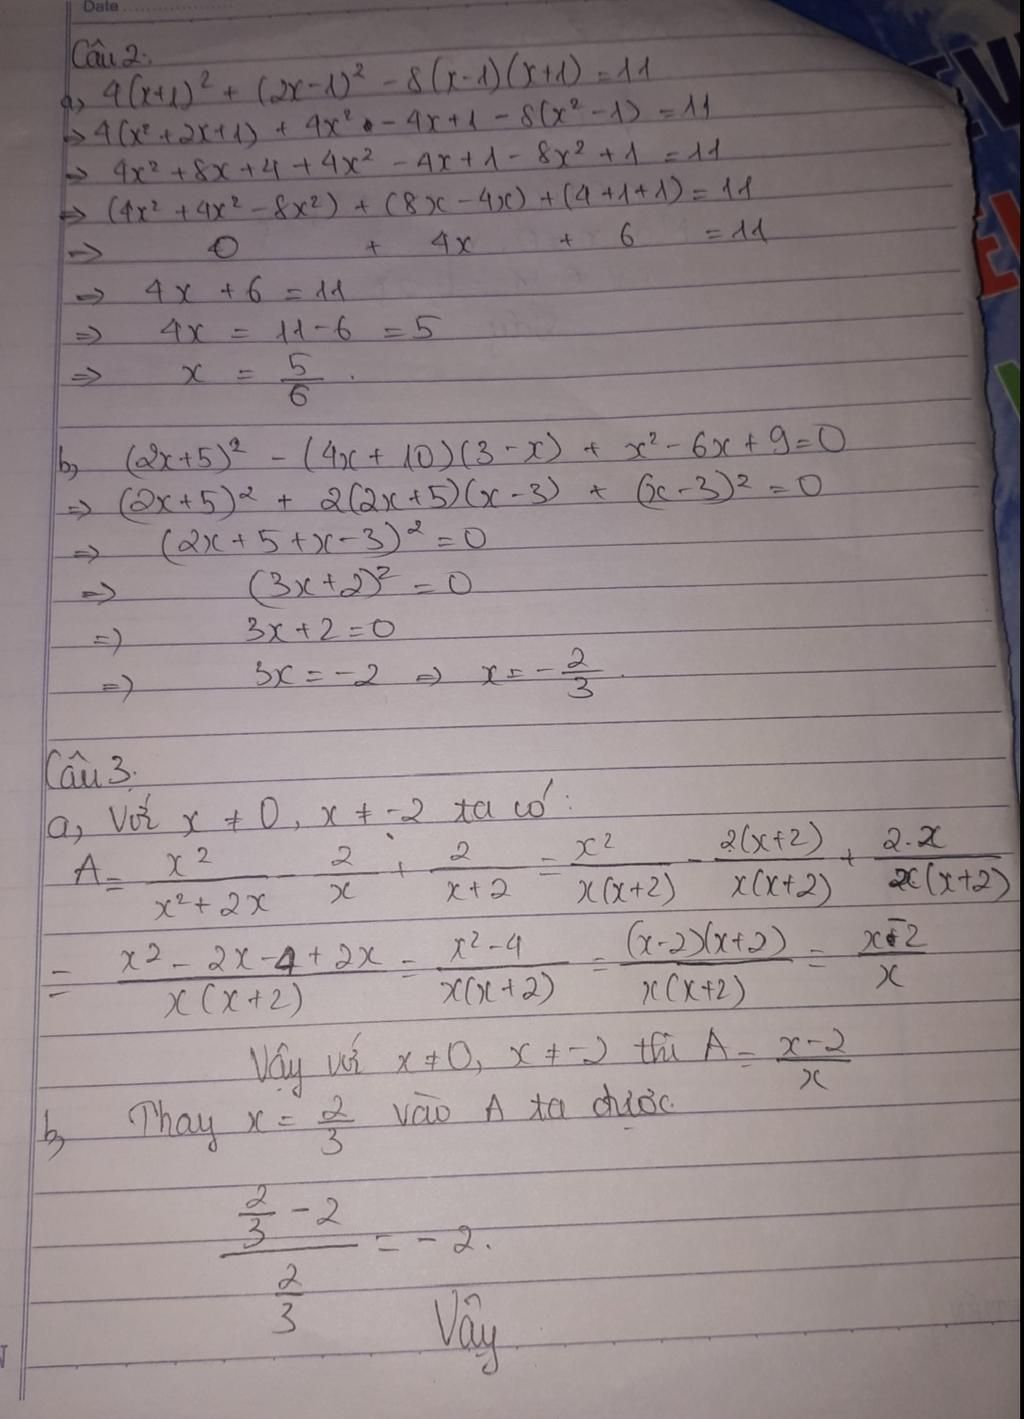 Date
Câu 2:
a, 4(x+1)² + (2x-1)² - 8(x-1)(x+1) = 11
=> 4(x²+2x+1) + 4x² - 4x+1 - 8(x²-1) = 11
=> 4x²+8x+4+4x² - 4x+1 - 8x²+1 = 11
=> (4x²+4x²-8x²) + (8x-4x) + (4+1+1) = 11
=> 0 + 4x + 6 = 11
=> 4x + 6 = 11
=> 4x = 11-6 = 5
=> x = 5/6.
b, (2x+5)² - (4x+10)(3-x) + x²-6x+9=0
=> (2x+5)² + 2(2x+5)(x-3) + (x-3)² = 0
=> (2x+5+x-3)² = 0
=> (3x+2)² = 0
=) 3x+2=0
=) 3x = -2 => x = -2/3.
Câu 3.
a, Với x ≠ 0, x ≠ -2 ta có:
A = x²/(x²+2x) - 2/x + 2/(x+2) = x²/(x(x+2)) - 2(x+2)/(x(x+2)) + 2.x/(x(x+2))
= (x²-2x-4+2x)/(x(x+2)) = (x²-4)/(x(x+2)) = (x-2)(x+2)/(x(x+2)) = (x-2)/x
Vậy với x≠0, x≠-2 thì A = (x-2)/x
b, Thay x = 2/3 vào A ta được.
(2/3 - 2)/(2/3) = -2.
Vậy